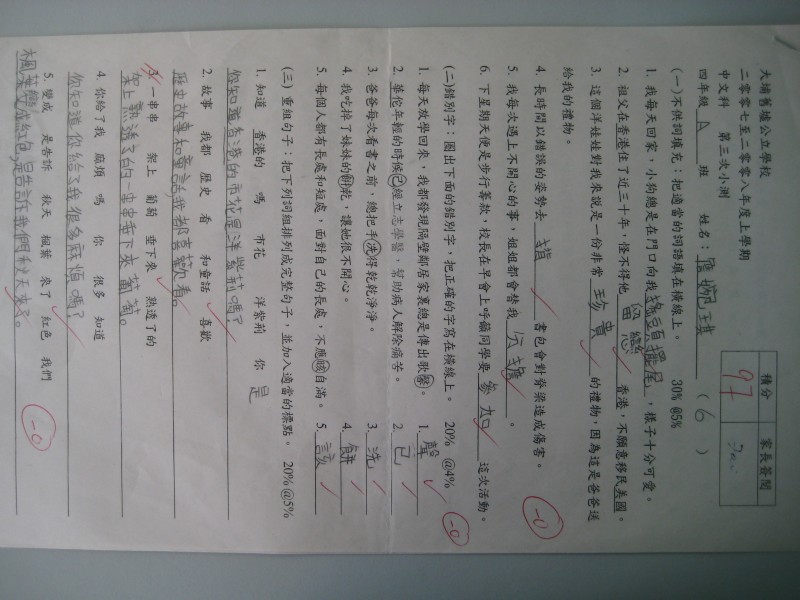 大埔舊墟公立學校
二零零七至二零零八年度上學期
中文科 第三次小測
四年級 A 班 姓名: ( 6 )
積分 家長簽閱
97
(一)不供詞填充:把適當的詞語填在橫線上。 30% @5%
1. 我每天回家,小狗總是在門口向我搖頭擺尾,樣子十分可愛。
2. 祖父在香港住了近三十年,怪不得他 香港,不願意移民美國。
3. 這個洋娃娃對我來說是一份非常 珍貴 的禮物,因為這是爸爸送
給我的禮物。
4. 長時間以錯誤的姿勢去 揹 書包會對脊梁造成傷害。
5. 我每次遇上不開心的事,姐姐都會替我 。
6. 下星期天便是步行籌款,校長在早會上呼籲同學要 參加 這次活動。
-0
(二)錯別字:圈出下面的錯別字,把正確的字寫在橫線上。 20% @4%
-0
1. 每天放學回來,我都發現隔壁鄰居家裏總是傳出歌馨。 1. 聲
2. 華佗年輕的時候己經立志學醫,幫助病人解除痛苦。 2. 已
3. 爸爸每次看書之前,總把手冼得乾乾淨淨。 3. 洗
4. 我吃掉了妹妹的 乾,讓她很不開心。 4. 餅
5. 每個人都有長處和短處,面對自己的長處,不應 自滿。 5. 該
(三) 重組句子:把下列詞組排列成完整句子,並加入適當的標點。 20% @5%
1. 知道 香港的 嗎 市花 洋紫荊 你 是
你知道香港的市花是洋紫荊嗎?
2. 故事 我都 歷史 看 和童話 喜歡
歷史故事和童話我都喜歡看。
3. 一串串 架上 葡萄 垂下來 熟透了的
架上熟透了的一串串垂下來葡萄。
4. 你給了我 麻煩 嗎 你 很多 知道
你知道你給了我很多麻煩嗎?
5. 變成 是告訴 秋天 楓葉 來了 紅色 我們
楓葉變成紅色,是告訴我們秋天來了。
-0